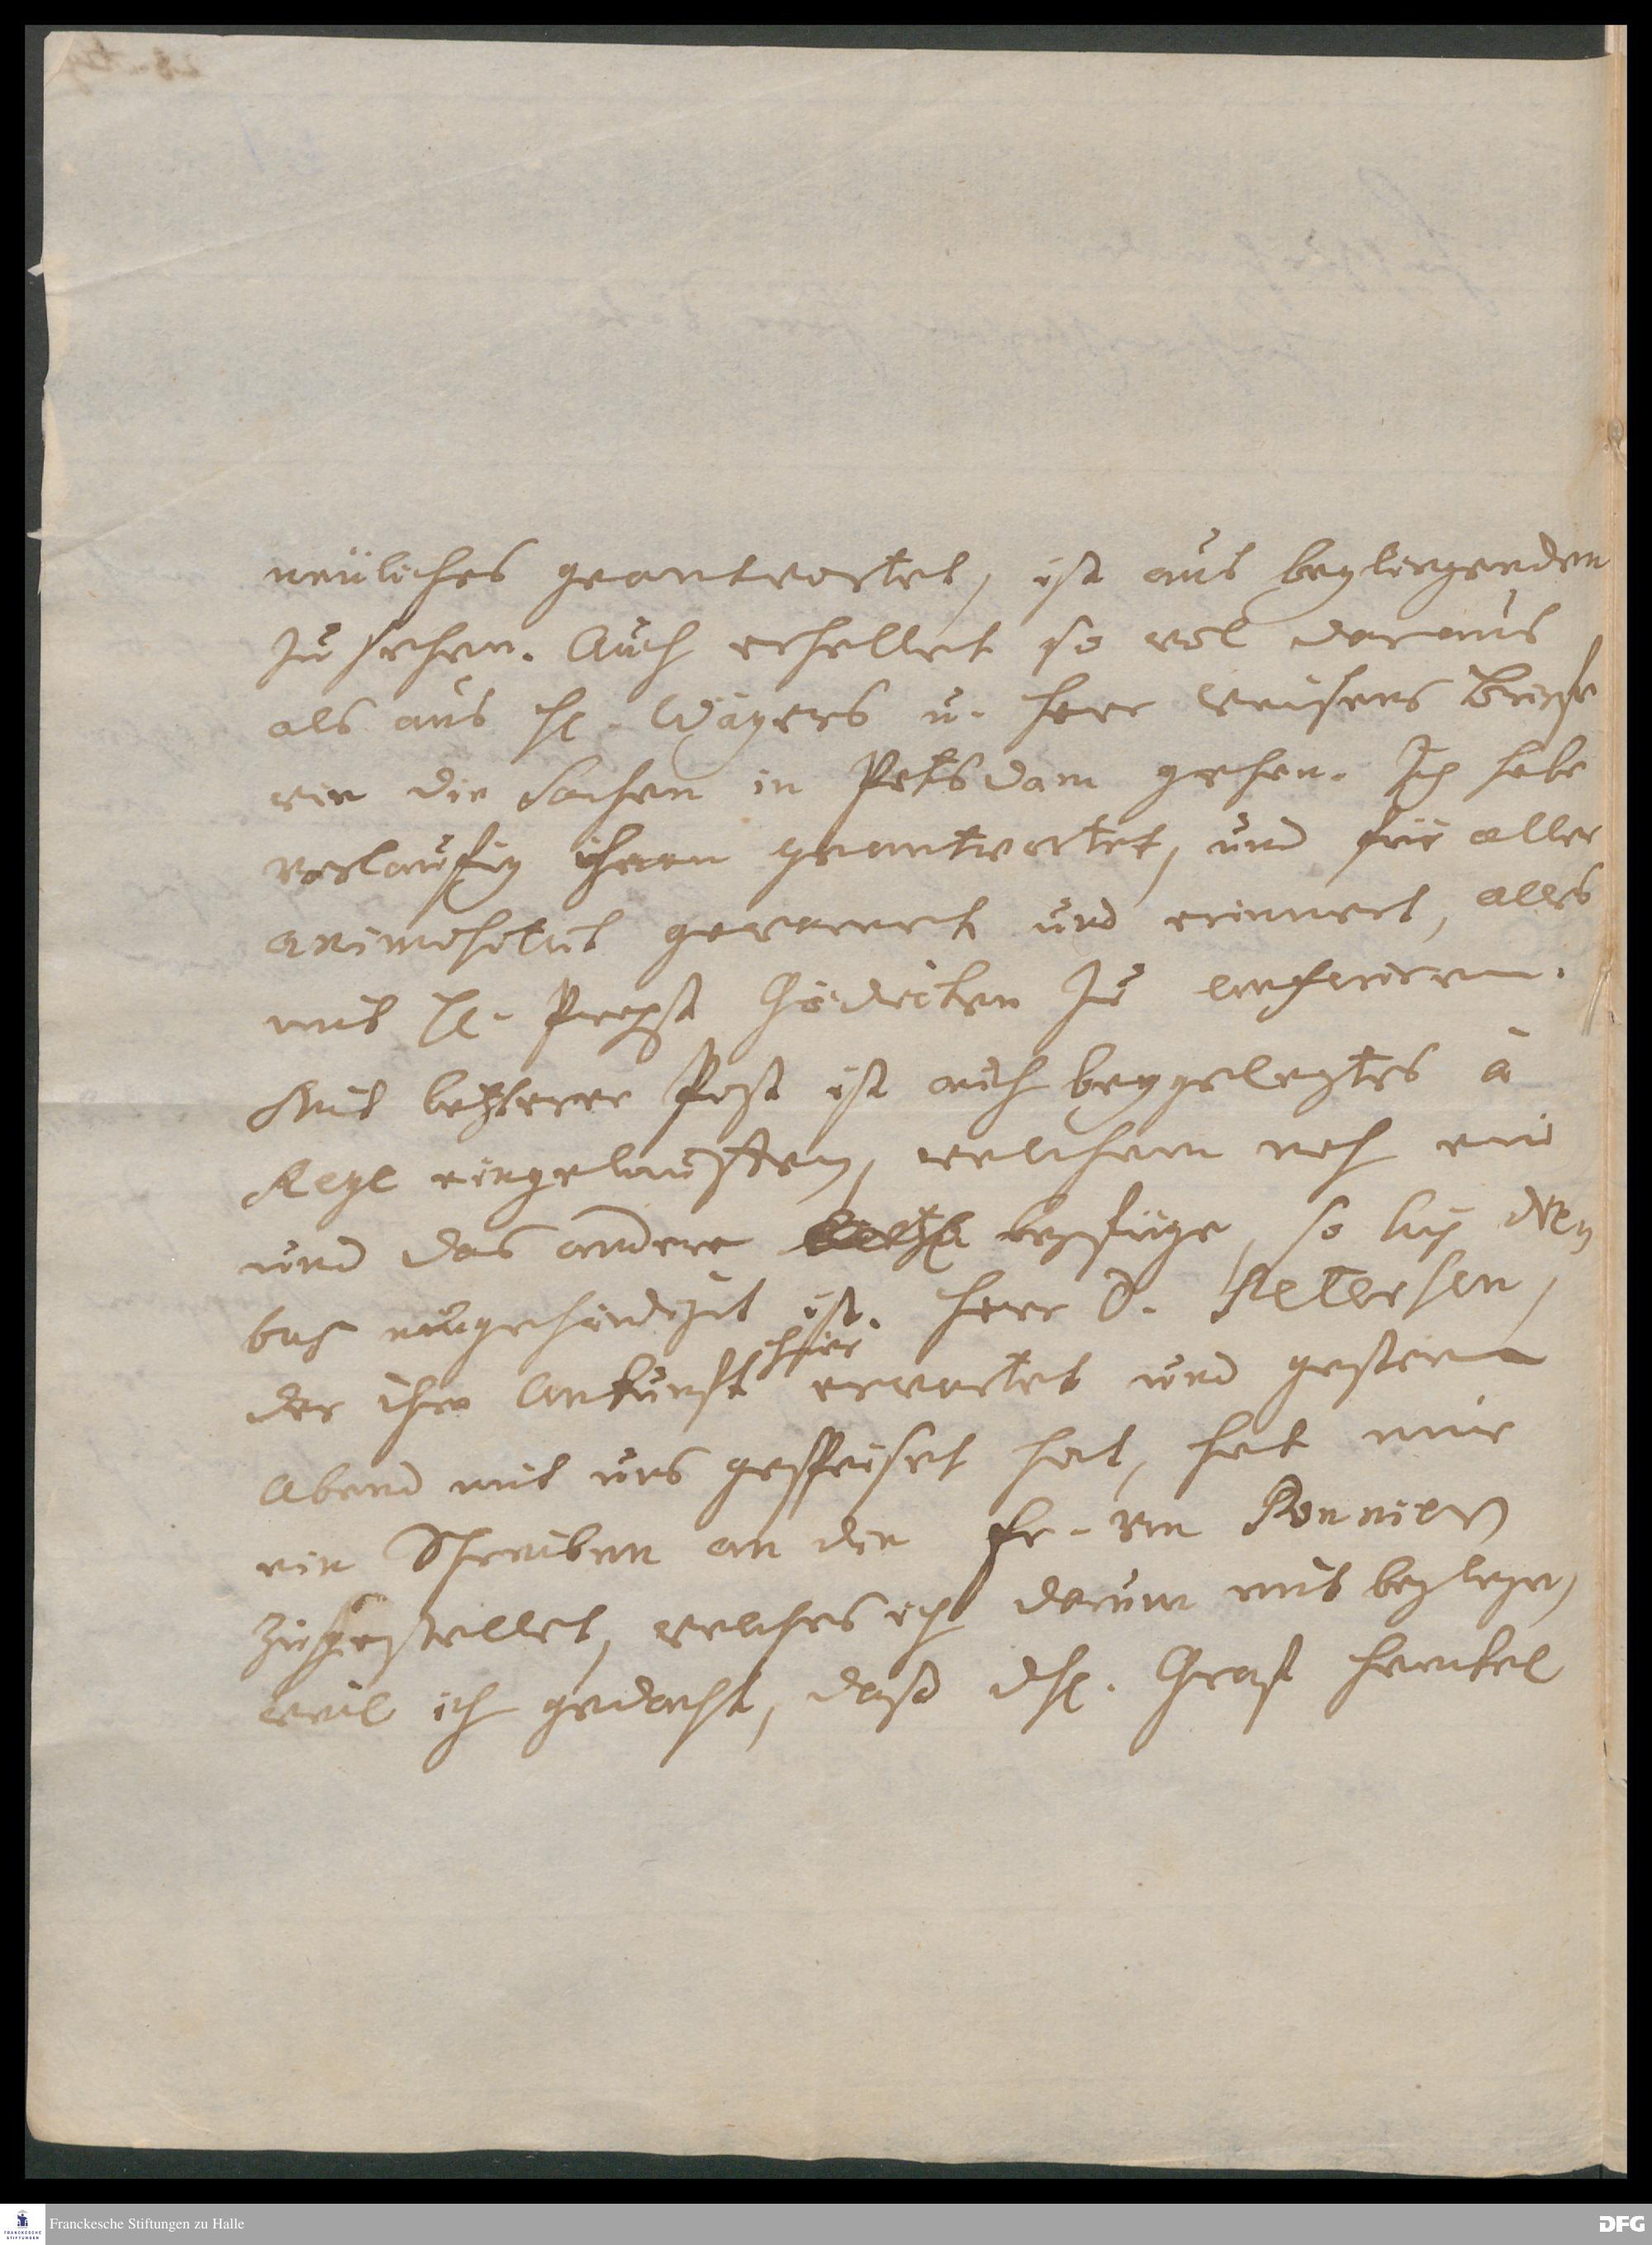 neüliches geantwortet, ist aus beyliegenden
zu sehen. Auch erhellet so wol daraus
als aus H. Wagers u. Herr Briefe
wie die Sachen in Potsdam gehen. Ich habe
vorlaüfig ihnen geantwortet, und für aller
animositet gewarnet und erinnert, alles
mit H. Propst Gödicken zu
Mit letzterer Post ist auch beygelegtes à
eingelauffen, welchem noch ein
und das andere beyfüge, so
ist. Herr D.
der ihre Ankunft hier erwartet und gestern
Abend mit uns gespeiset hat, hat mir
ein Schreiben an die Fr. von
zugestellet, welches ich darum mit beylege,
weil ich gedacht, daß H. Graf Henkel
Franckesche Stiftungen zu Halle
DFG